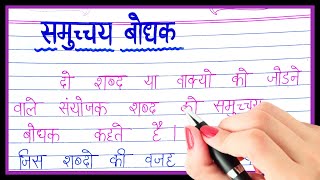 समुच्चय बोधक
दो शब्द या वाक्यो को जोडने
वाले संयोजक शब्द को समुच्चय
बोधक कहते है।
जिस शब्दो की वजह